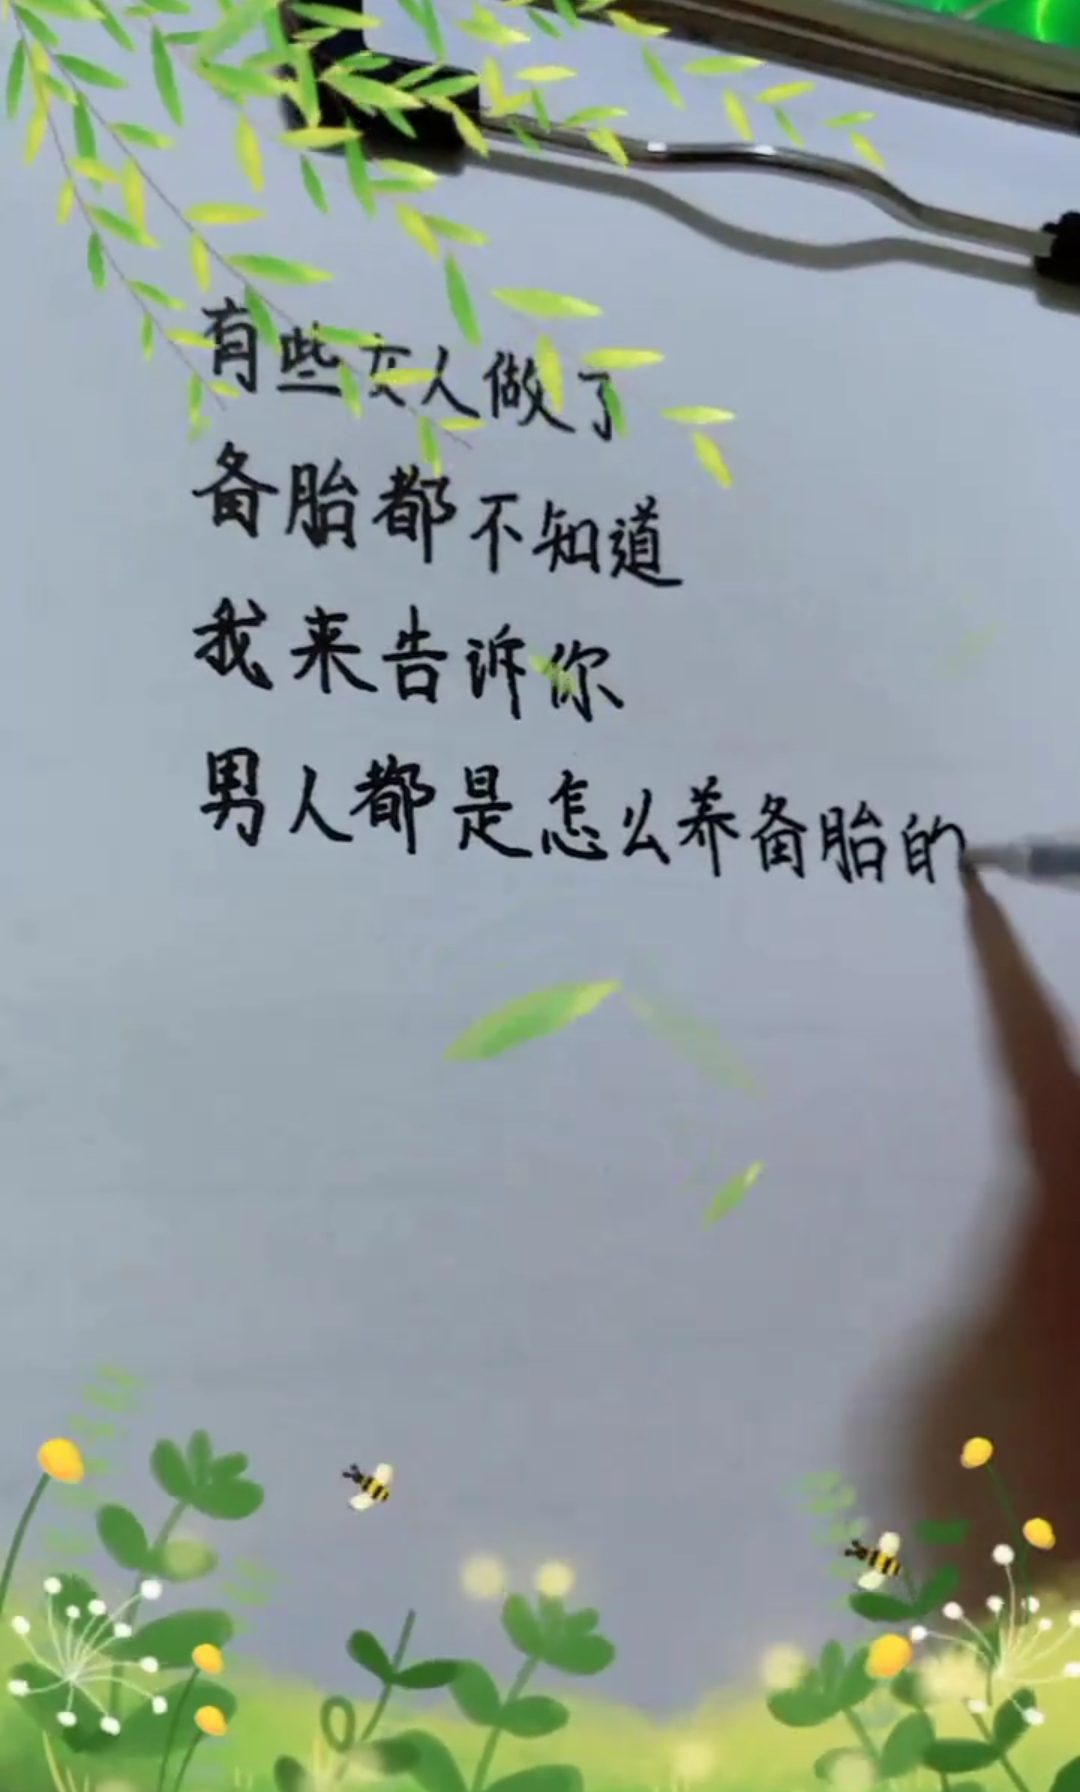 有些女人做了
备胎都不知道
我来告诉你
男人都是怎么养备胎的